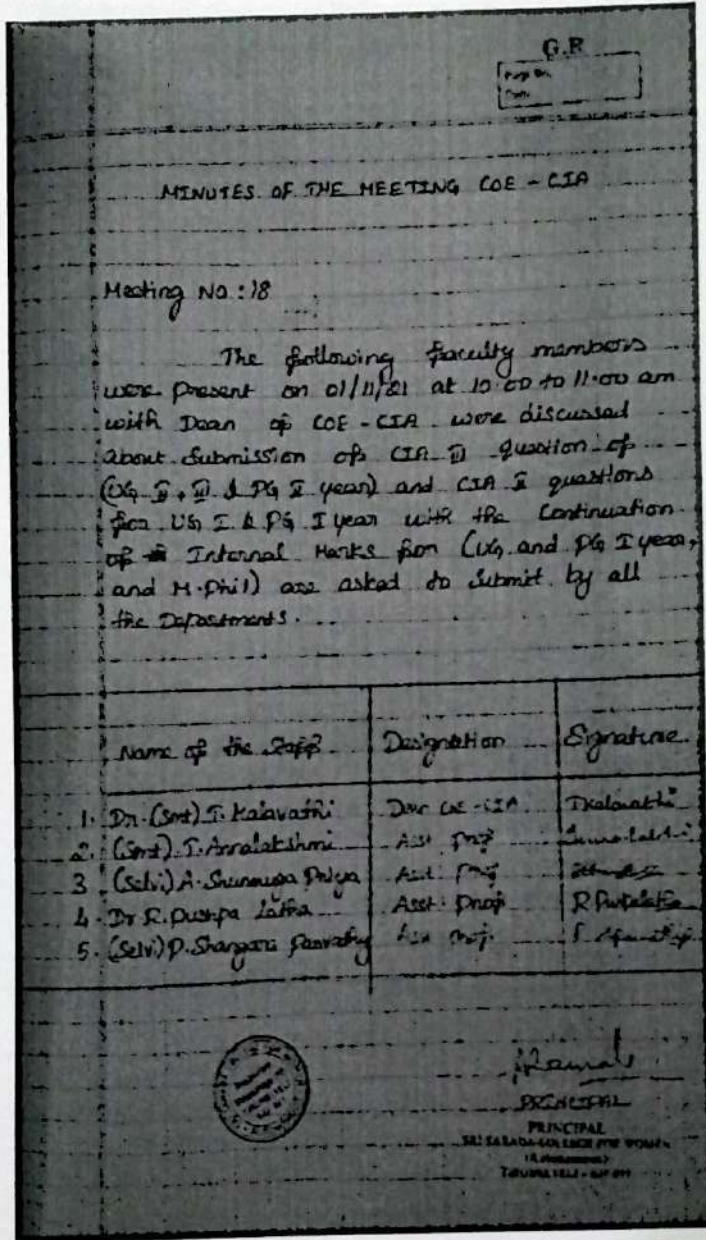 G.R
Page No.
Date
MINUTES OF THE MEETING COE - CIA
Meeting No : 18
The following faculty members
were present on 01/11/21 at 10.00 to 11.00 am
with Dean of COE - CIA were discussed
about Submission of CIA II question of
(UG II, III & PG II year) and CIA I questions
for UG I & PG I year with the Continuation
of Internal Marks for (UG and PG I year,
and M.Phil) are asked to submit by all
the Departments.
Name of the Staff Designation Signature
1. Dr. (Smt) T. Kalavathi COE - CIA T Kalavathi
2. (Smt). T. Annalakshmi Asst Prof
3 (Selvi) A. Shunmuga Priya Asst Prof
4. Dr R. Pushpa Latha Asst. Prof R Pushpalatha
5. (Selvi) P. Shangari Parvathy Asst Prof.
PRINCIPAL
PRINCIPAL
SRI SARADA COLLEGE FOR WOMEN
(Autonomous)
TIRUNELVELI - 627 011